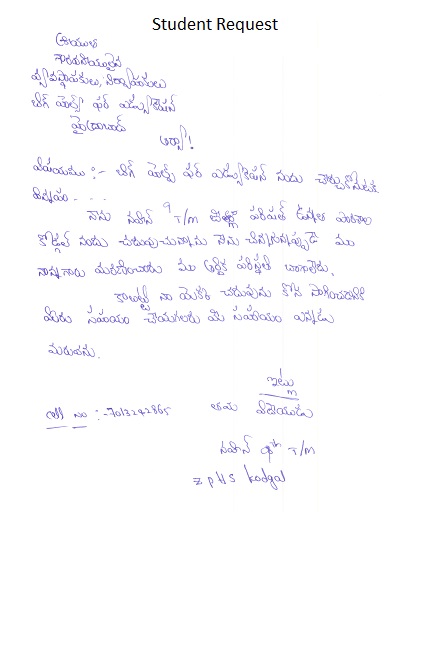 Student Request
గౌరవనీయులైన
వ్యవస్థాపకులు, నిర్వాహకులు
బిగ్ హెల్ప్ ఫర్ ఎడ్యుకేషన్
హైద్రాబాద్
ఆర్యా!
విషయము :- బిగ్ హెల్ప్ ఫర్ ఎడ్యుకేషన్ నందు చేర్చుకొనుటకై
విన్నపం . . .
నేను నవీన్ 9 T/M జిల్లా పరిషత్ ఉన్నత పాఠశాల
కోడ్గల్ నందు చదువుచున్నాను నేను చిన్నగున్నప్పుడే మా
నాన్నగారు మరణించాడు మా ఆర్థిక పరిస్థితి బాగలేదు.
కాబట్టి నా యొక్క చదువును కొన సాగించడానికి
మీరు సహాయం చేయగలరు మీ సహాయం ఎన్నడు
మరువను.
ఇట్లు
cell no :- 7013242865
తమ విధేయుడు
నవీన్ 9th T/M
Z P H S Kodgal